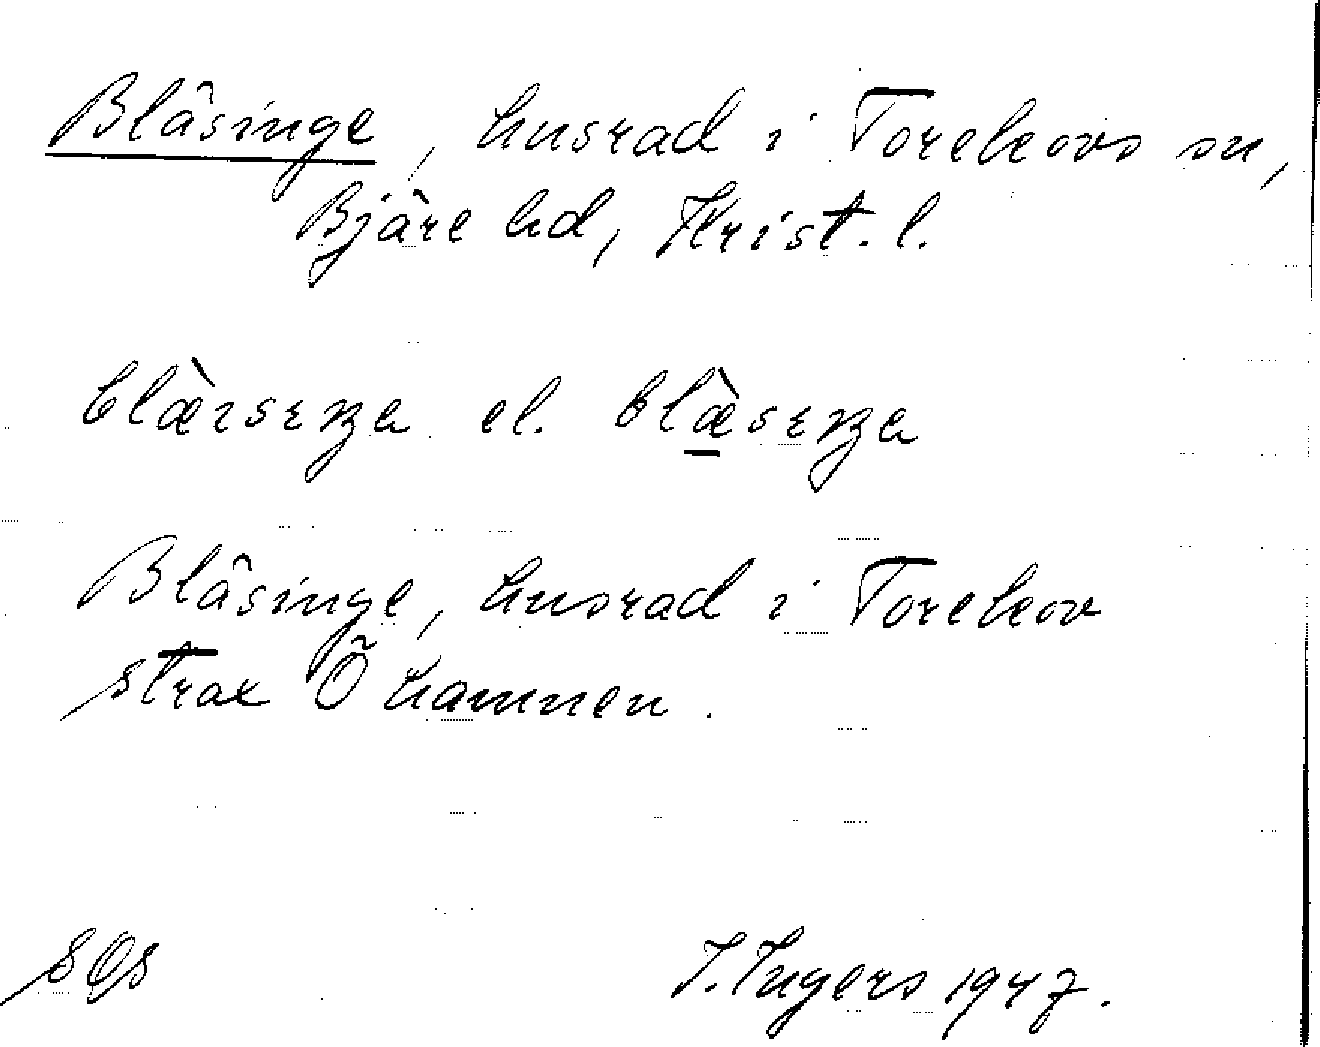 Blåsinge, husrad i Torekovs sn,
Bjäre hd, Krist. l.
el.
Blåsinge, husrad i Torekov
strax Ö hamnen.
I. Ingers 1947.